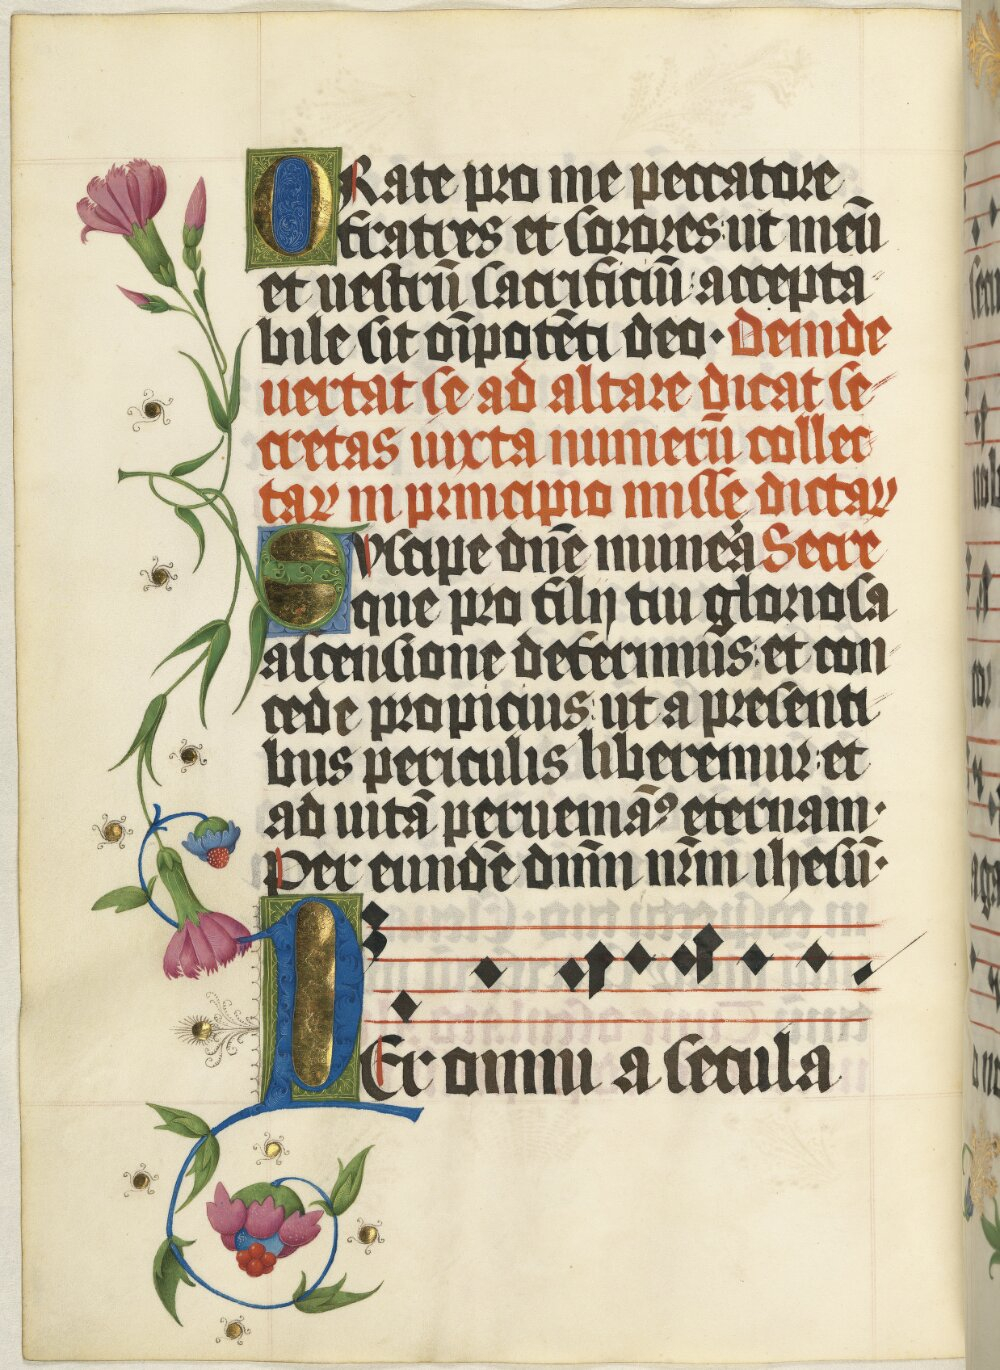 ORate pro me peccatore
fratres et sorores: ut meū
et vestrū sacrificiū: accepta
bile sit oīpotēti deo· Deinde
vertat se ad altare dicat se
cretas iuxta numerū collec
taꝝ in principio misse dictaꝝ
SVscipe dn̄e munera Secre
que pro filij tui gloriosa
ascensione deferimus: et con
cede propicius: ut a presenti
bus periculis liberemur: et
ad vitā perveniāꝰ eternam·
Per eundē dn̄m nr̄m ihesū·
PEr omni a secula